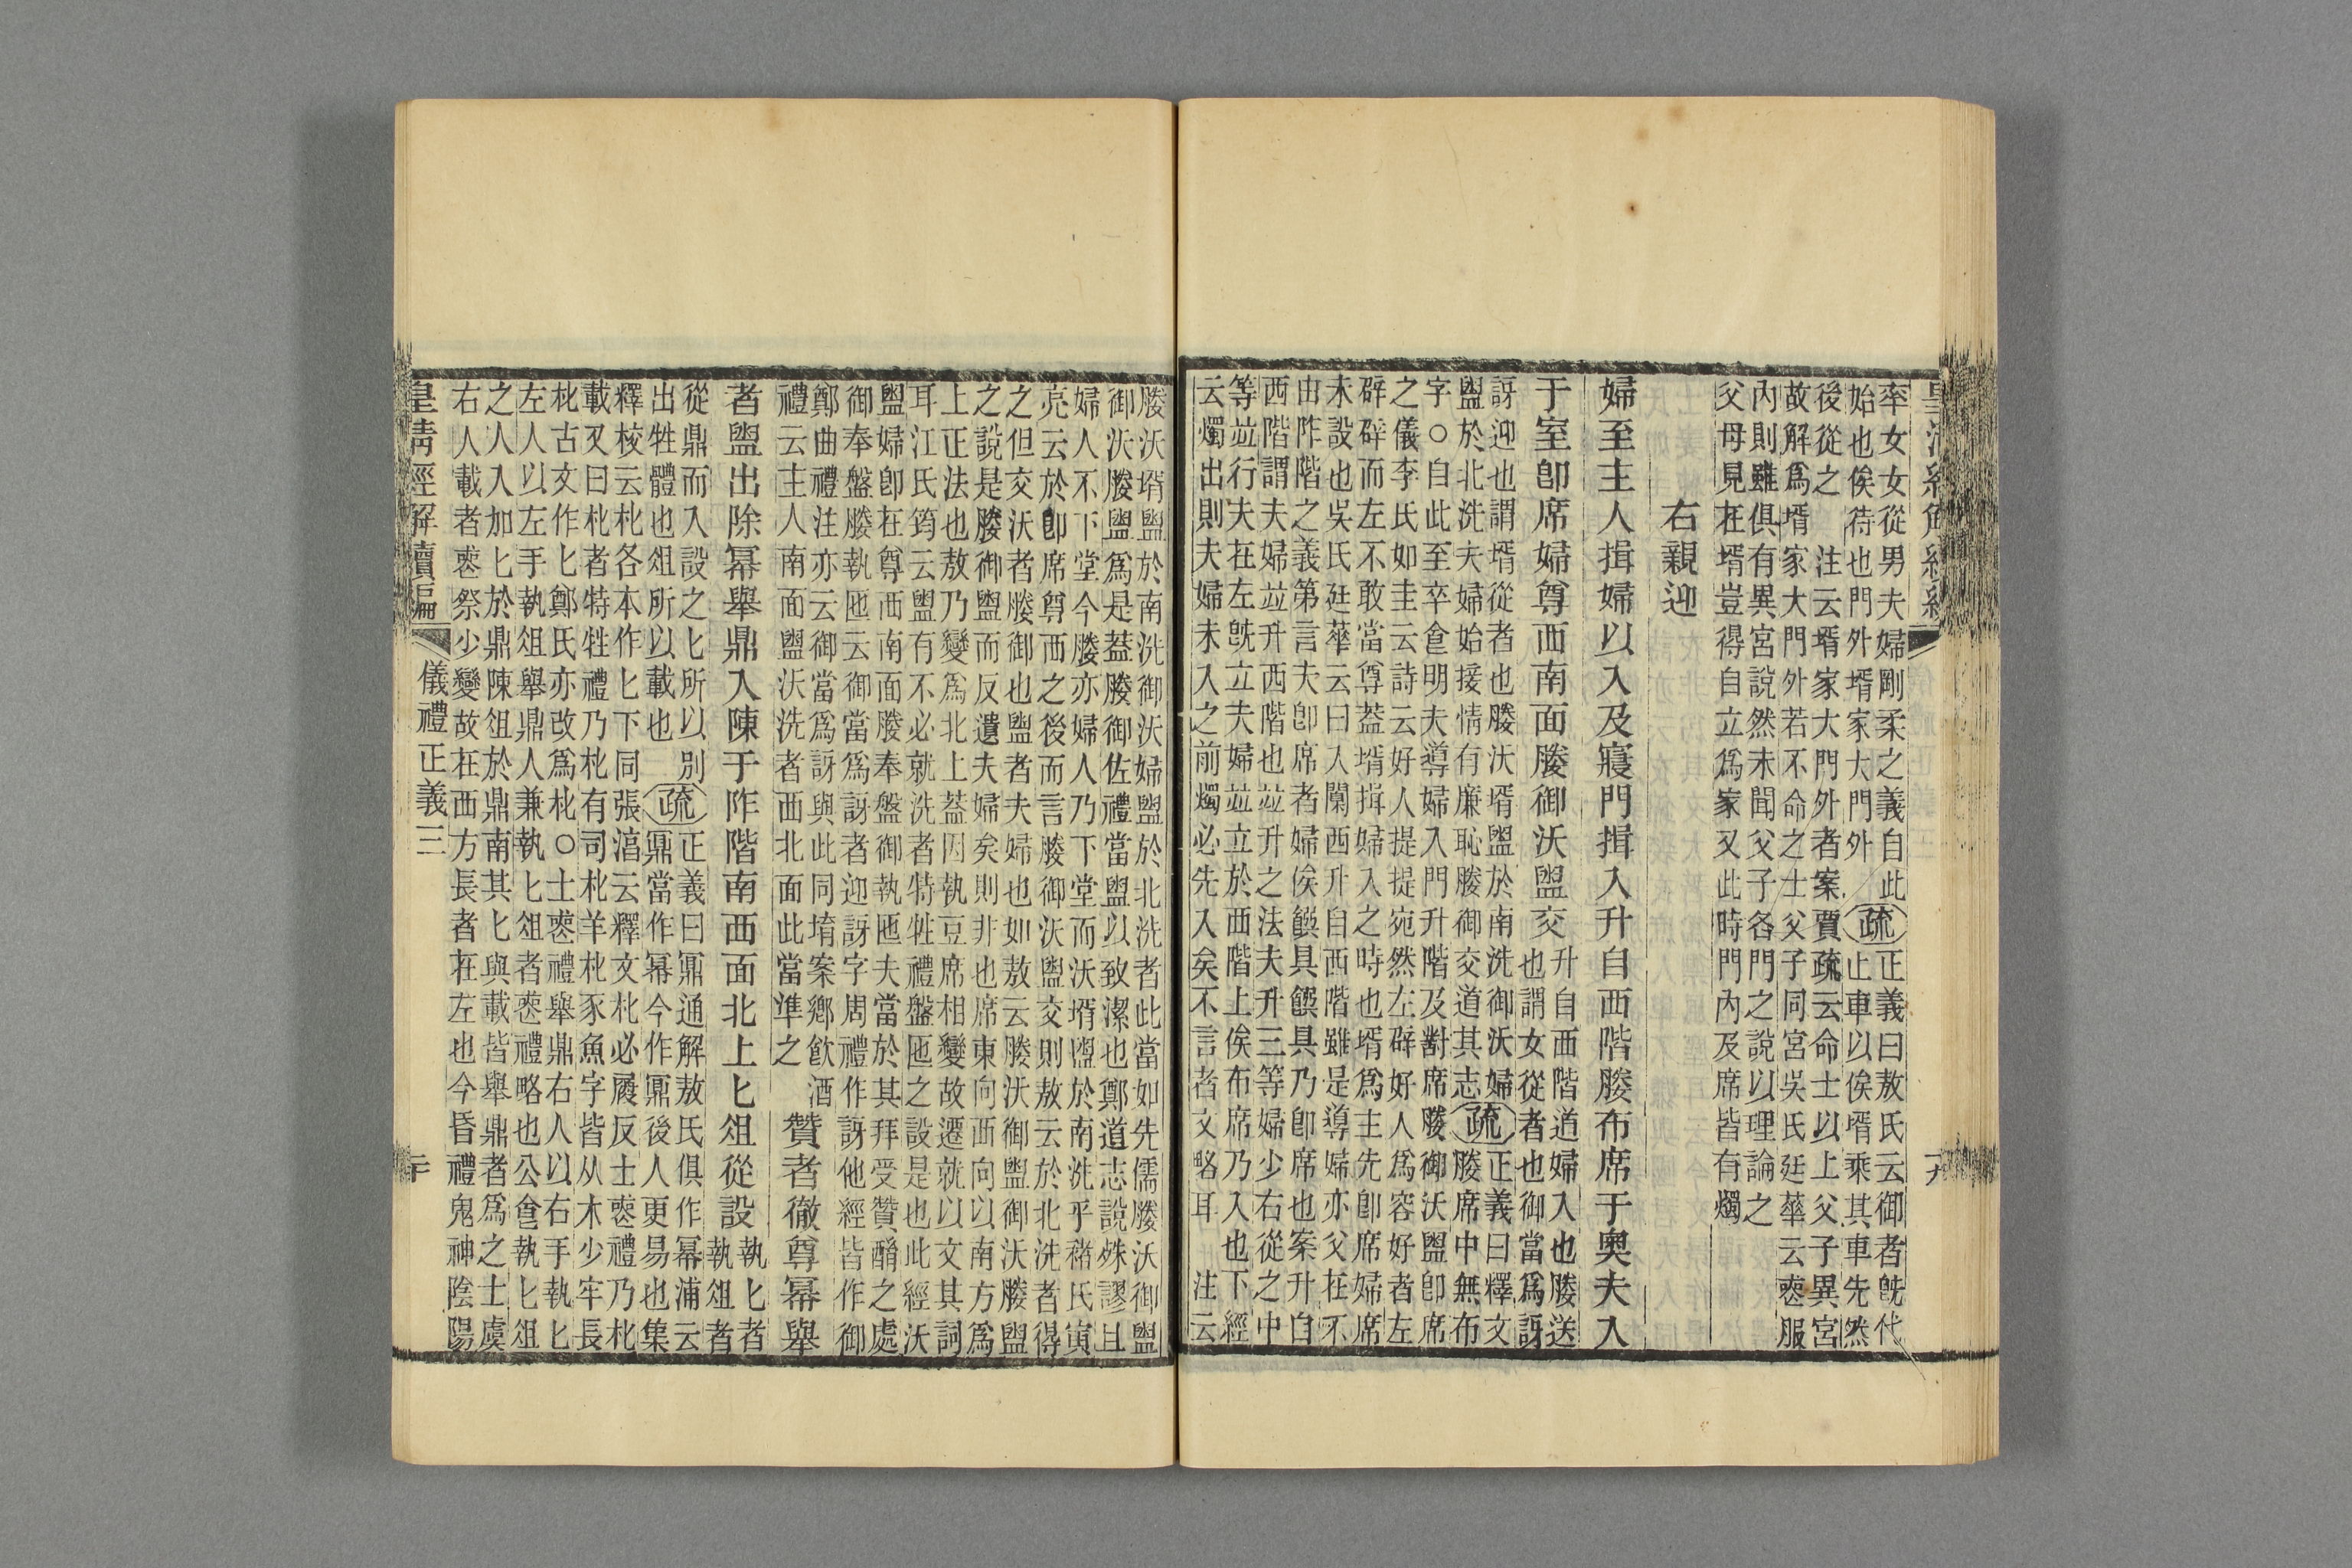 皇清經解續編
十九
率女女從男夫婦剛柔之義自此
始也俟待也門外壻家大門外
疏
正義曰敖氏云御者旣代
止車以俟壻乘其車先然
後從之　注云壻家大門外者案賈疏云命士以上父子異宮
故解爲壻家大門外若不命之士父子同宮吳氏廷華云䘮服
內則雖俱有異宮說然未聞父子各門之說以理論之
父母見在壻豈得自立爲家又此時門內及席皆有燭
右親迎
婦至主人揖婦以入及寢門揖入升自西階媵布席于奧夫入
于室卽席婦尊西南面媵御沃盥交
升自西階道婦入也媵送
也謂女從者也御當爲訝
訝迎也謂壻從者也媵沃壻盥於南洗御沃婦
盥於北洗夫婦始接情有廉恥媵御交道其志
疏
正義曰釋文
媵席中無布
字○自此至卒食明夫導婦入門升階及對席媵御沃盥卽席
之儀李氏如圭云詩云好人提提宛然左辟好人爲容好者左
辟辟而左不敢當尊葢壻揖婦入之時也壻爲主先卽席婦席
未設也吳氏廷華云曰入闑西升自西階雖是導婦亦父在不
由阼階之義第言夫卽席者婦俟饌具饌具乃卽席也案升自
西階謂夫婦竝升西階也竝升之法夫升三等婦少右從之中
等竝行夫在左旣立夫婦竝立於西階上俟布席乃入也下經
云燭出則夫婦未入之前燭必先入矣不言者文略耳　注云
媵沃壻盥於南洗御沃婦盥於北洗者此當如先儒媵沃御盥
御沃媵盥爲是葢媵御佐禮當盥以致潔也鄭道志說殊謬且
婦人不下堂今媵亦婦人乃下堂而沃壻盥於南洗乎褚氏寅
亮云於卽席尊西之後而言媵御沃盥交則敖云於北洗者得
之但交沃者媵御也盥者夫婦也如敖云媵沃御盥御沃媵盥
之說是媵御盥而反遺夫婦矣則非也席東向西向以南方爲
上正法也敖乃變爲北上葢因執豆席相變故遷就以文其詞
耳江氏筠云盥有不必就洗者特牲禮盤匜之設是也此經沃
盥婦卽在尊西南面媵奉盤御執匜夫當於其拜受贊酳之處
御奉盤媵執匜云御當爲訝者迎訝字周禮作訝他經皆作御
鄭曲禮注亦云御當爲訝與此同堉案鄕飮酒
禮云主人南面盥沃洗者西北面此當準之
贊者徹尊冪舉
者盥出除冪舉鼎入陳于阼階南西面北上匕俎從設
執匕者
執俎者
從鼎而入設之匕所以別
出牲體也俎所以載也
疏
正義曰鼏通解敖氏俱作冪浦云
鼏當作冪今作鼏後人更易也集
釋校云朼各本作匕下同張淳云釋文朼必履反士䘮禮乃朼
載又曰朼者特牲禮乃朼有司朼羊朼豕魚字皆从木少牢長
朼古文作匕鄭氏亦改爲朼○士䘮禮舉鼎右人以右手執匕
左人以左手執俎舉鼎人兼執匕俎者䘮禮略也公食執匕俎
之人入加匕於鼎陳俎於鼎南其匕與載皆舉鼎者爲之士虞
右人載者䘮祭少變故在西方長者在左也今昏禮鬼神陰陽
皇清經解續編
儀禮正義三
二十